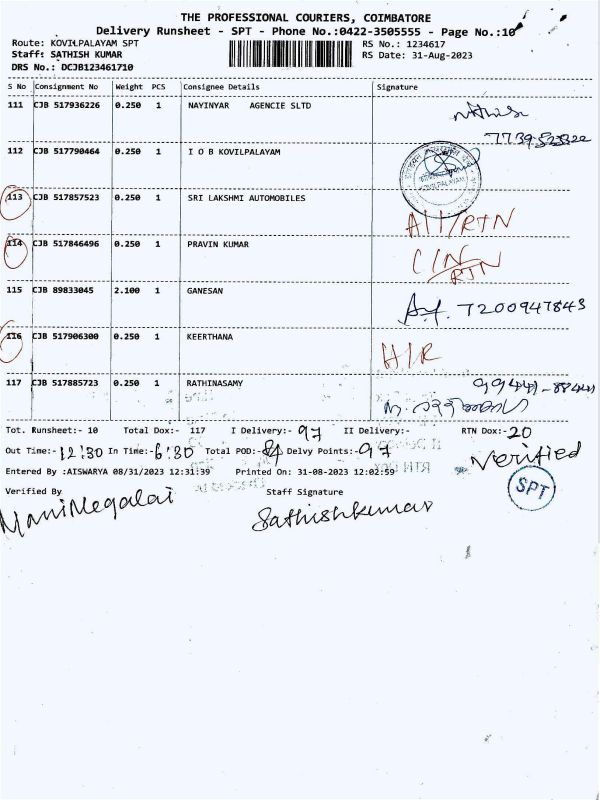 THE PROFESSIONAL COURIERS, COIMBATORE
Delivery Runsheet - SPT - Phone No.:0422-3505555 - Page No.:10
Route: KOVILPALAYAM SPT
RS No.: 1234617
Staff: SATHISH KUMAR
RS Date: 31-Aug-2023
DRS No.: DCJB123461710
S No Consignment No Weight PCS Consignee Details Signature
111 CJB 517936226 0.250 1 NAYINYAR AGENCIE SLTD
112 CJB 517790464 0.250 1 I O B KOVILPALAYAM
KOVILPALAYAM
113 CJB 517857523 0.250 1 SRI LAKSHMI AUTOMOBILES
A11/RTN
114 CJB 517846496 0.250 1 PRAVIN KUMAR
C/N
RTN
115 CJB 89833045 2.100 1 GANESAN
7200947843
116 CJB 517906300 0.250 1 KEERTHANA
H/R
117 CJB 517885723 0.250 1 RATHINASAMY
Tot. Runsheet:- 10 Total Dox:- 117 I Delivery:- 97 II Delivery:- RTN Dox:- 20
Out Time:- 12:30 In Time:- 6:30 Total POD:- 84 Delvy Points:- 97
Verified
Entered By :AISWARYA 08/31/2023 12:31:39 Printed On: 31-08-2023 12:02:59
SPT
Verified By Staff Signature
ManiMegalai
Sathishkumar